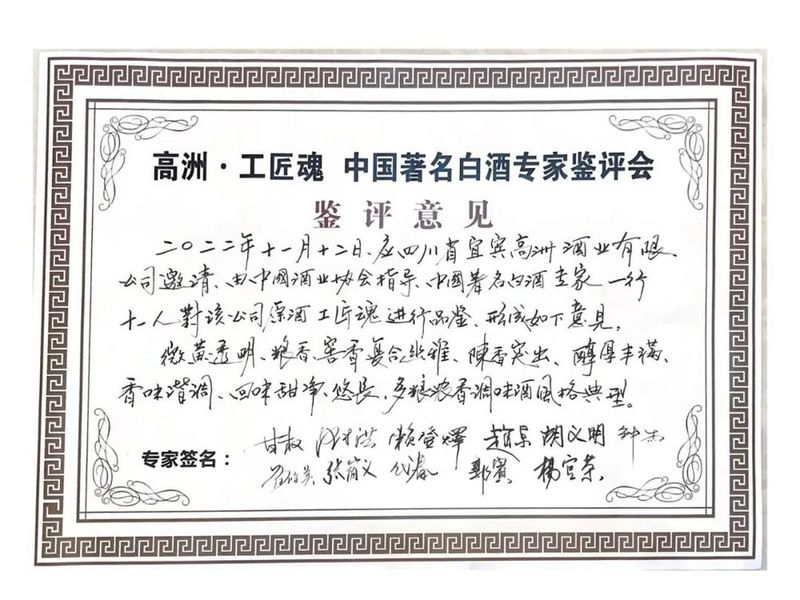 高洲·工匠魂 中国著名白酒专家鉴评会
鉴评意见
二〇二二年十一月十二日、应四川省宜宾高洲酒业有限
公司邀请、由中國酒业协会指导、中國著名白酒专家一行
十一人對该公司原酒工匠魂进行品鉴、形成如下意见。
微黄透明、粮香、窖香复合优雅、陳香突出、醇厚丰满、
香味谐调、回味甜净、悠長、多粮浓香调味酒風格典型。
专家签名：
甘权 赖登燡 胡义明 钟杰
郭賓 楊官荣